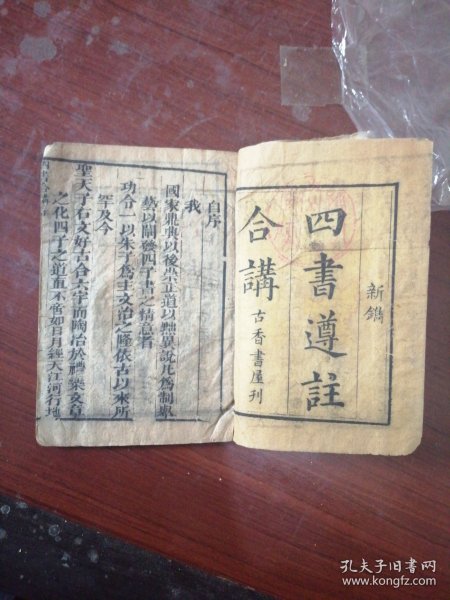 新鐫
四書遵註
合講
古香書屋刊
自序
我
國家鼎興以後崇正道以黜異說凡爲制舉
藝以闡發四子書之精意者
功令一以朱子爲主文治之隆依古以來所
罕及今
聖天子右文好古合六宇而陶冶於禮樂文章
之化四子之道直不啻如日月經天江河行地
孔夫子旧书网
www.kongfz.com